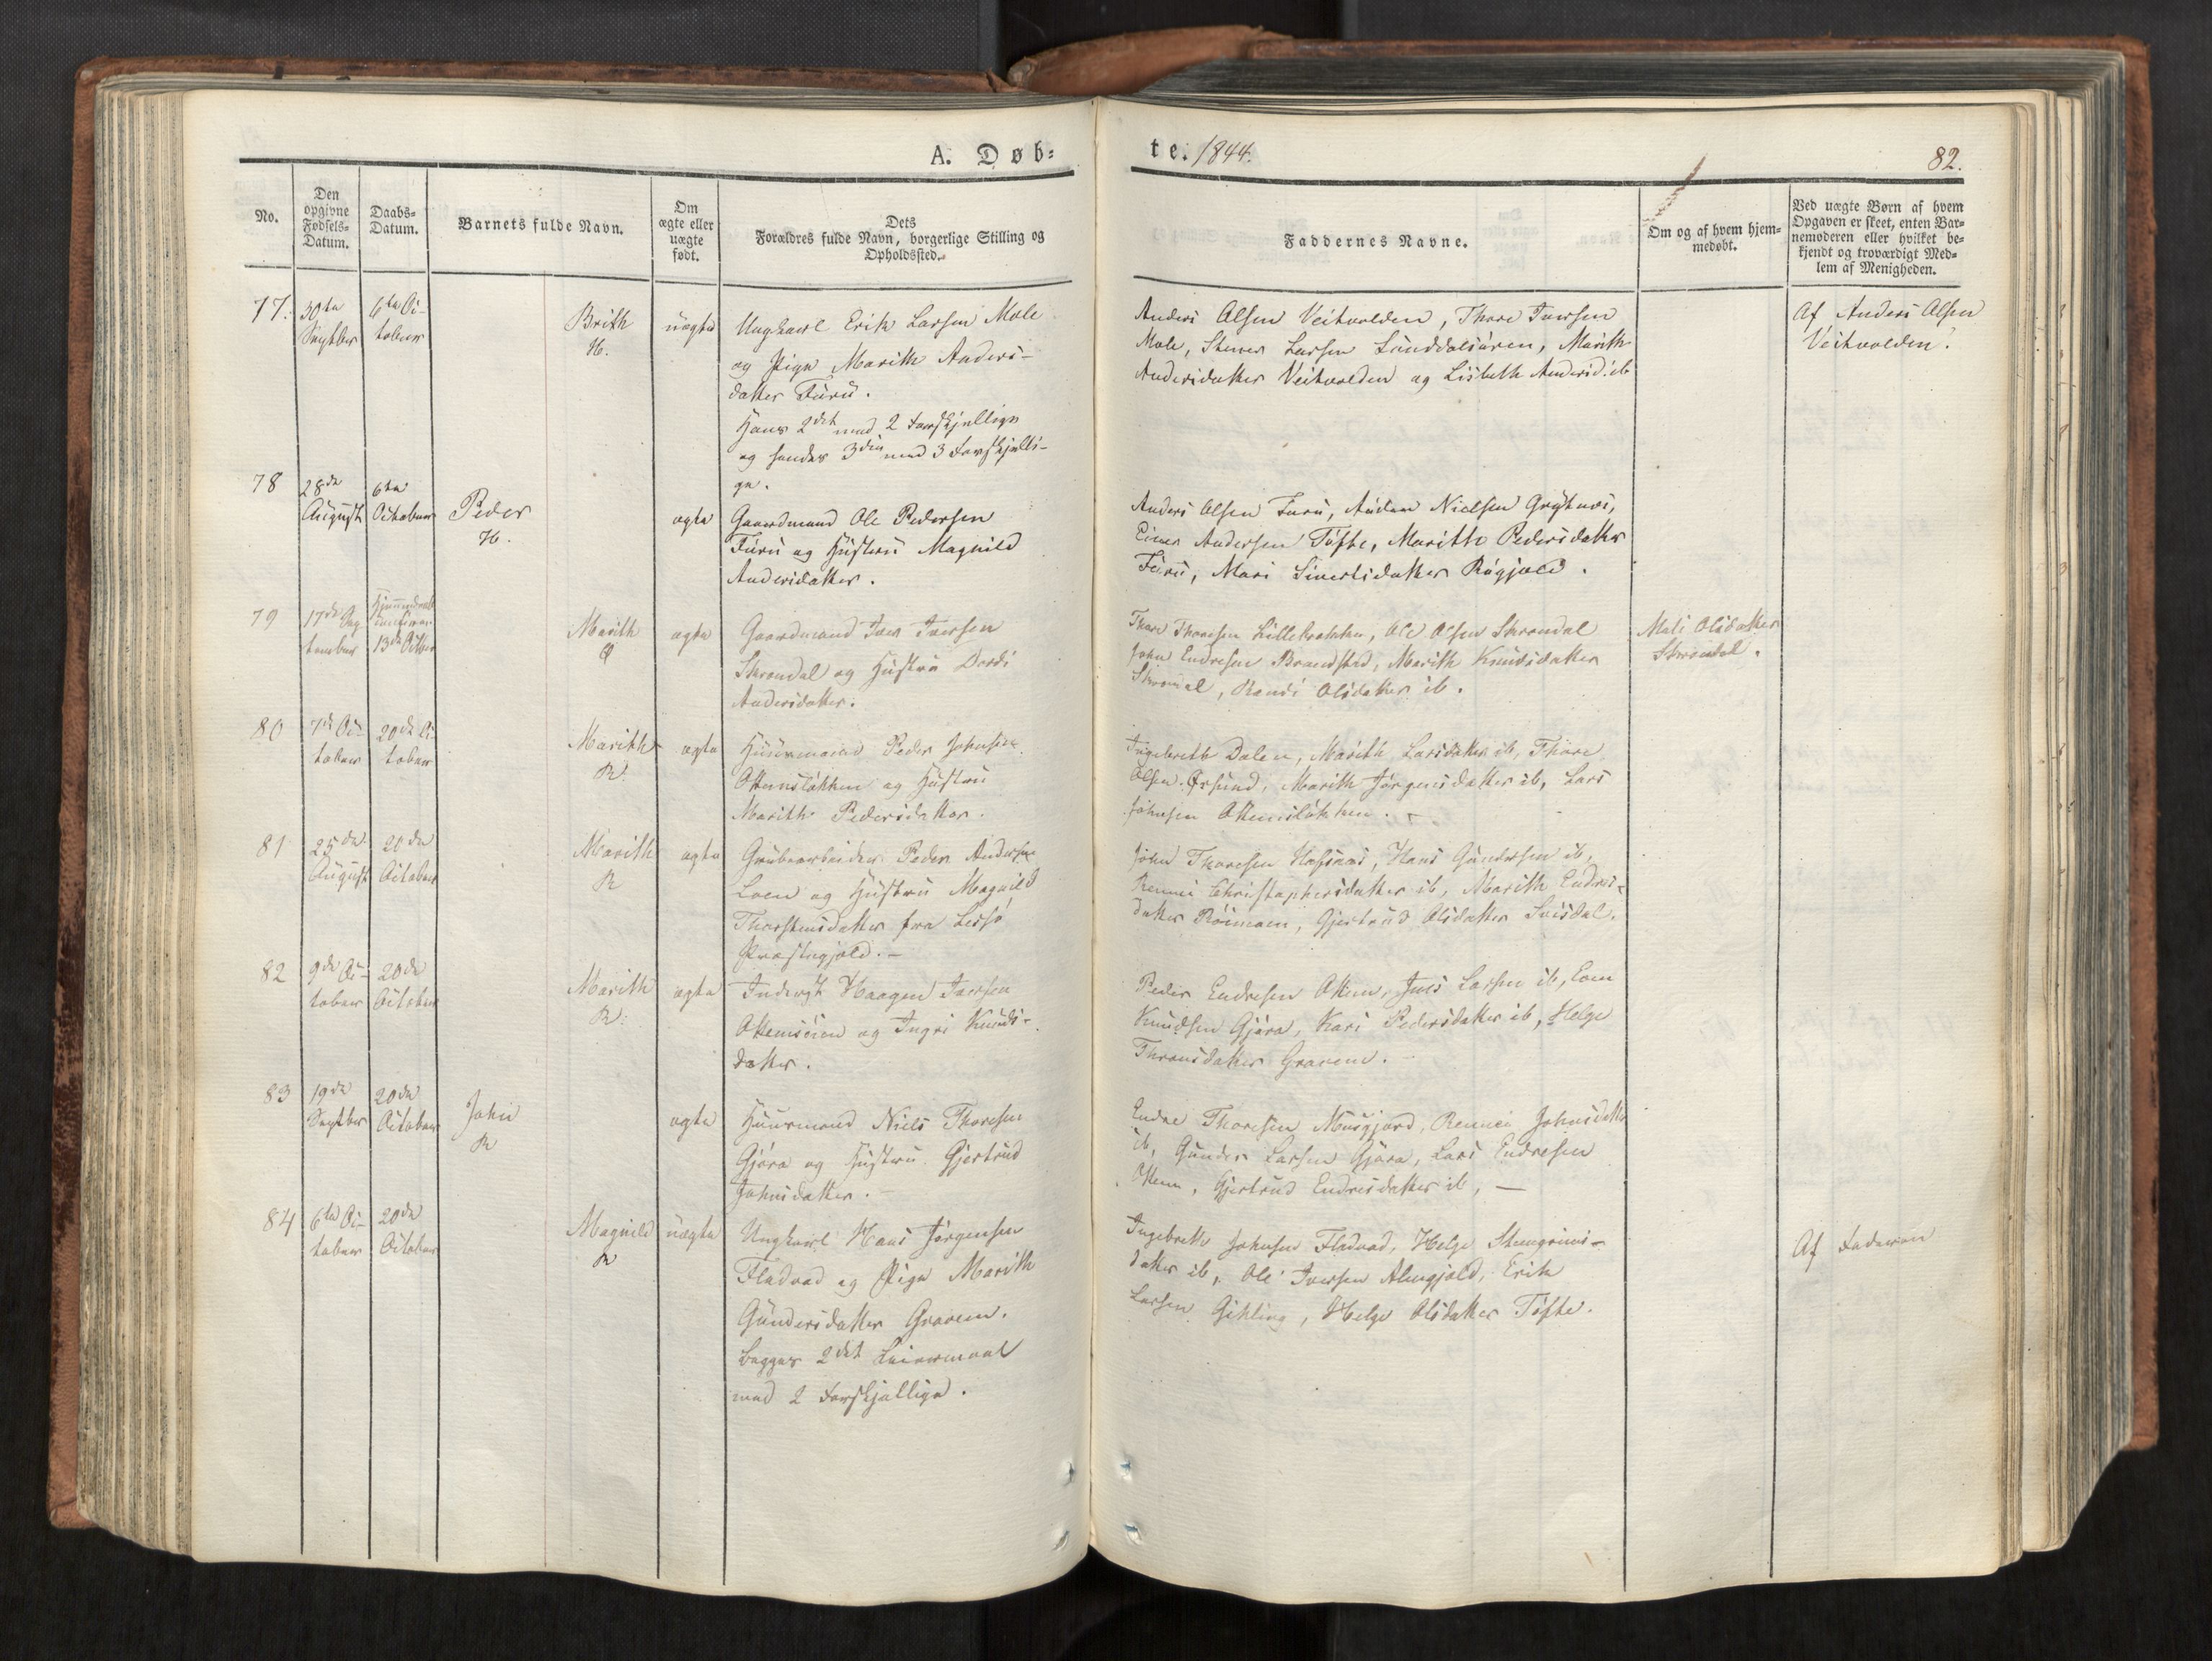 A. Døb=
te. 1844.
82.
No.
Den opgivne Fødsels=Datum.
Daabs=Datum.
Barnets fulde Navn.
Om ægte eller uægte født.
Dets Forældres fulde Navn, borgerlige Stilling og Opholdssted.
Faddernes Navne.
Om og af hvem hjem=medøbt.
Ved uægte Børn af hvem Opgaven er skeet, enten Bar=nemoderen eller hvilket be=kjendt og troværdigt Med=lem af Menigheden.
77. 30te Septbr 6te October Brith H. uægte
Ungkarl Erik Larsen Mole
og Pige Marith Anders-
datter Furu.
Hans 2det med 2 Forskjellige
og hendes 3die med 3 Forskjelli-
ge.
Anders Olsen Veitvolden, Thore Iversen
Mole, Stener Larsen Sunddalsøren, Marith
Andersdatter Veitvolden og Lisbeth Andersd. ib
Af Anders Olsen
Veitvolden.
78 28de August 6te October Peder H. ægte
Gaardmand Ole Pedersen
Furu og Hustru Magnild
Andersdatter.
Anders Olsen Furu, Nielsen
Einer Andersen Tøfte, Marith Pedersdatter
Furu, Mari Sivertsdatter
79 17de September 13de Octbr Marith ægte
Gaardmand Iver Iversen
Skrondal og Hustru Dordi
Andersdatter.
Thore Thoresen Ole Olsen Skrondal
John Endresen Brandstad, Marith Knudsdatter
Skrondal, Randi Olsdatter ib.
Mali Olsdatter
Skrondal.
80 7de October 20de October Marith R. ægte
Huusmand Peder Johnsen
Ottemsløkken og Hustru
Marith Pedersdatter.
Ingebreth Dalen, Marith Larsdatter ib, Thore
Olsen Ørsund, Marith Jørgensdatter ib, Lars
Johnsen Ottemsløkken.
81 25de August 20de October Marith R ægte
Grubearbeider Peder Andersen
Loen og Hustru Magnild
Thorstensdatter fra Lessø
Præstegjeld. -
John Thoresen Hafsaas, Hans Gundersen ib,
Rennei Christophersdatter ib, Marith Endres-
datter Gjertrud Olsdatter Svisdal.
82 9de October 20de October Marith R. ægte
Inderst Haagen Iversen
Ottemsøien og Ingri Knuds-
datter.
Peder Endresen Ottem, Jens Larsen ib,
Knudsen Gjøra, Kari Pedersdatter ib, Helge
Thronsdatter Gravem.
83 19de Septbr 20de October John R ægte
Huusmand Niels Thoresen
Gjøra og Hustru Gjertrud
Johnsdatter. -
Endre Thoresen Musgjerd, Rennei Johnsdatter
ib, Gunder Larsen Gjøra, Lars Endresen
Ottem, Gjertrud Endresdatter ib, —
84 6te October 20de October Magnild R uægte
Ungkarl Hans Jørgensen
Fladvad og Pige Marith
Gundersdatter Gravem.
Begges 2det Leiermaal
med 2 Forskjellige.
Ingebreth Johnsen Fladvad, Helge Steengrims-
datter ib, Ole Iversen Almgjeld, Erik
Larsen Gikling, Helge Olsdatter Tøfte.
Af Faderen